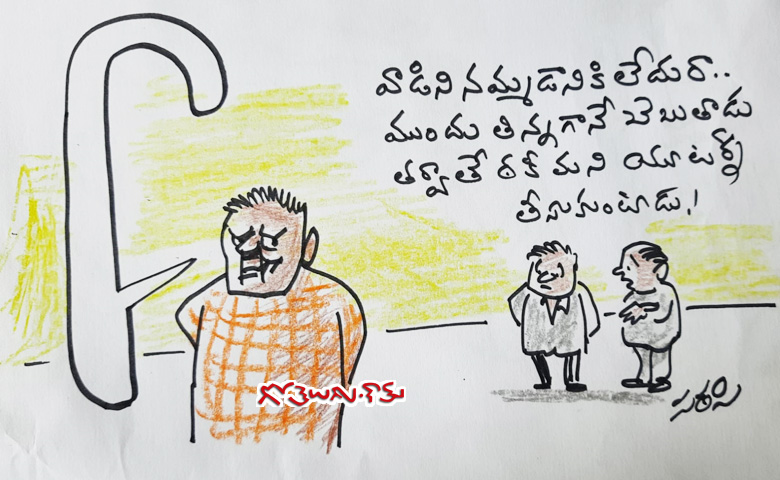 వాడిని నమ్మడానికి లేదురా..
ముందు తిన్నగానే చెబుతాడు
తర్వాతే ఠకీమని యూటర్న్
తీసుకుంటాడు.!
గోతెలుగు.కామ్
సరసి